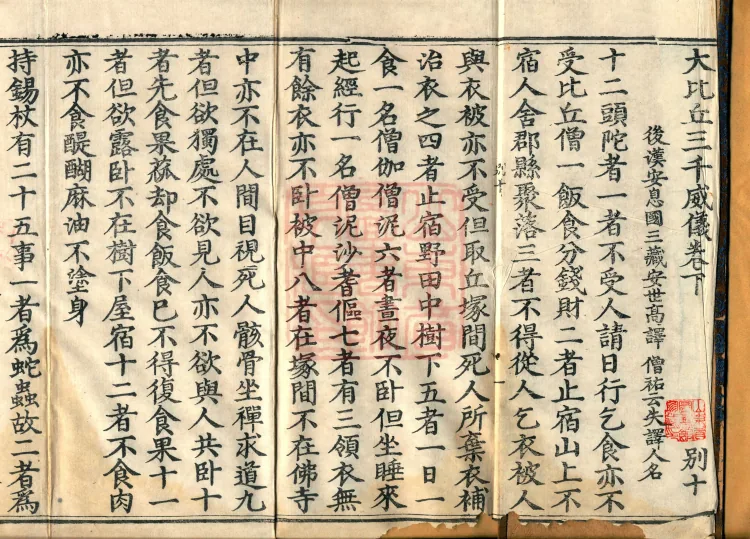 大比丘三千威儀卷下
別十
後漢安息國三藏安世高譯 僧祐云失譯人名
十二頭陀者一者不受人請日行乞食亦不
受比丘僧一飯食分錢財二者止宿山上不
宿人舍郡縣聚落三者不得從人乞衣被人
與衣被亦不受但取丘塚間死人所棄衣補
治衣之四者止宿野田中樹下五者一日一
食一名僧伽僧泥六者晝夜不卧但坐睡來
起經行一名僧泥沙者傴七者有三領衣無
有餘衣亦不卧被中八者在塚間不在佛寺
中亦不在人間目視死人骸骨坐禪求道九
者但欲獨處不欲見人亦不欲與人共卧十
者先食果蓏却食飯食已不得復食果十一
者但欲露卧不在樹下屋宿十二者不食肉
亦不食醍醐麻油不塗身
持錫杖有二十五事一者爲蛇蟲故二者爲
別十